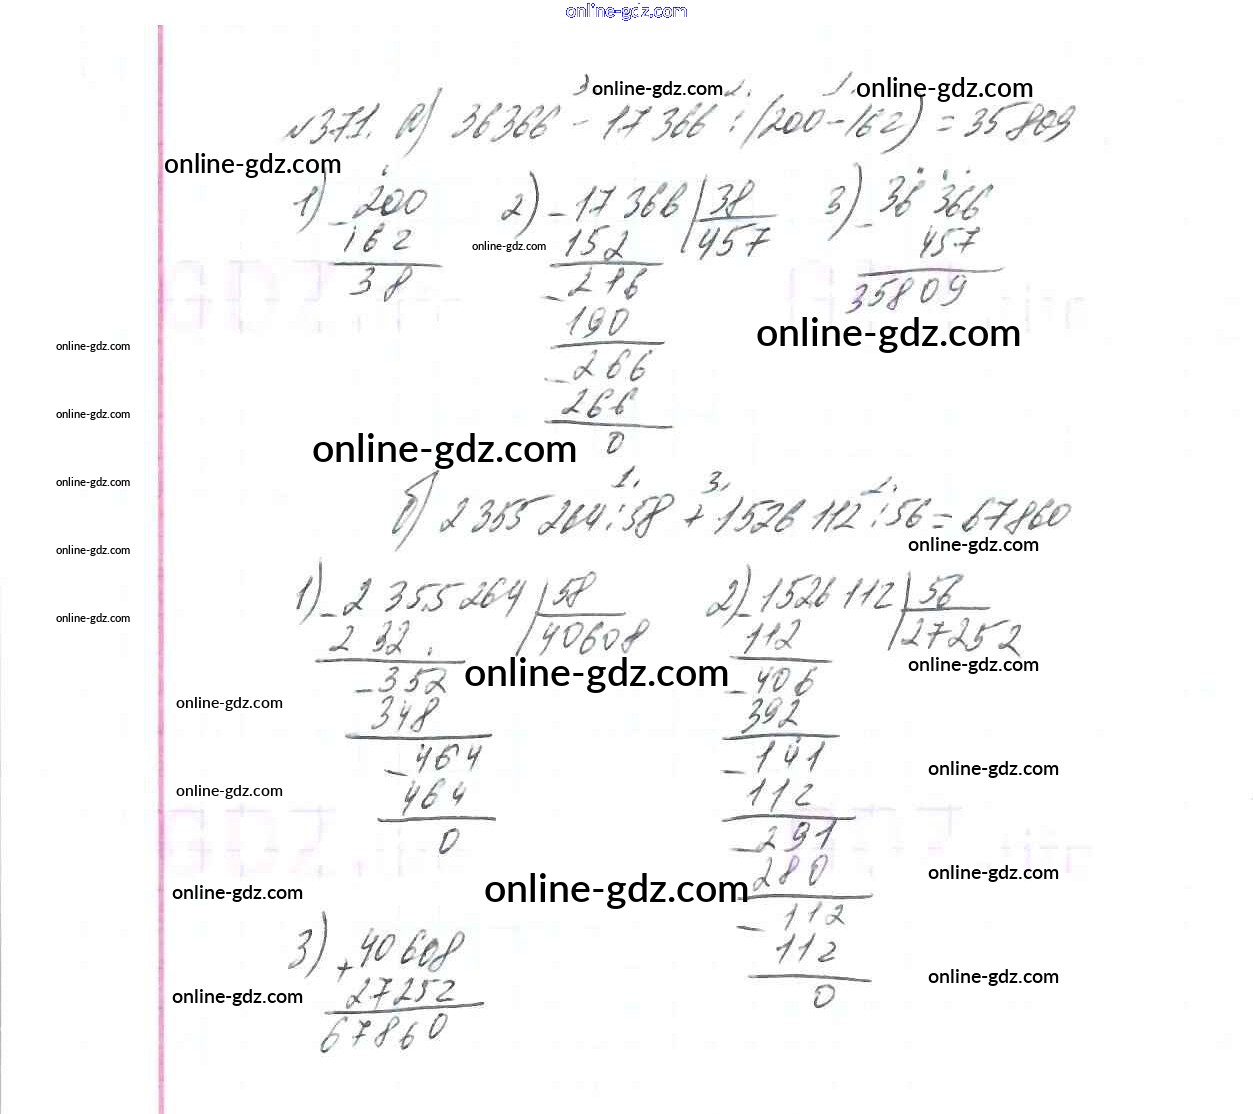 online-gdz.com
3 online-gdz.com 2. 1. online-gdz.com
№371. а) 36366 - 17366 : (200-162) = 35809
online-gdz.com
1) - 200 2) - 17366 | 38 3) - 36366
162 online-gdz.com 152 457 457
38 - 216 35809
190 online-gdz.com
online-gdz.com
- 266
266
online-gdz.com
0
online-gdz.com
1. 3. 2.
online-gdz.com
б) 2355264 : 58 + 1526112 : 56 = 67860
online-gdz.com
online-gdz.com
1) - 2355264 | 58 2) - 1526112 | 56
online-gdz.com
232 40608 112 27252
- 352 online-gdz.com - 406 online-gdz.com
online-gdz.com
348 392
- 464 - 141 online-gdz.com
online-gdz.com
464 112
0 - 291
280 online-gdz.com
online-gdz.com online-gdz.com
- 112
3) + 40608 112
27252 0 online-gdz.com
online-gdz.com
67860